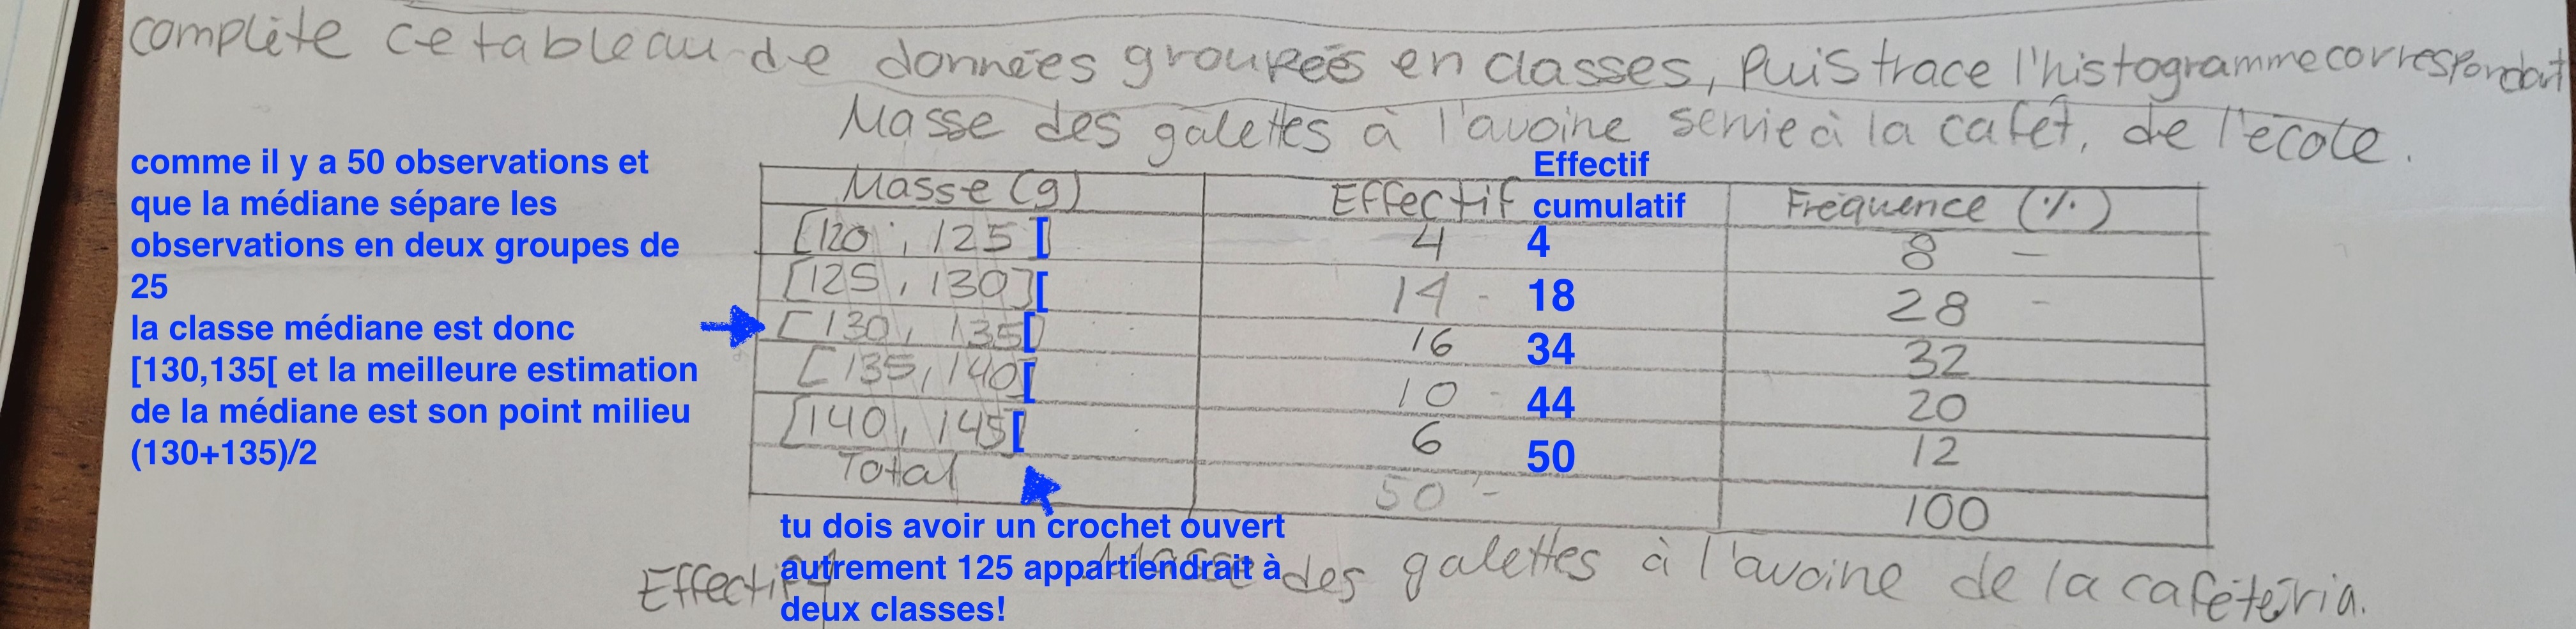 complète ce tableau de données groupées en classes, puis trace l'histogramme correspondant
Masse des galettes à l'avoine servie à la cafét. de l'école.
comme il y a 50 observations et
que la médiane sépare les
observations en deux groupes de
25
la classe médiane est donc
[130,135[ et la meilleure estimation
de la médiane est son point milieu
(130+135)/2
Masse (g) Effectif Effectif cumulatif Fréquence (%)
[120, 125[ 4 4 8
[125, 130][ 14 18 28
[130, 135[ 16 34 32
[135, 140[ 10 44 20
[140, 145[ 6 50 12
Total 50 100
tu dois avoir un crochet ouvert
autrement 125 appartiendrait à
deux classes!
Effectif Masse des galettes à l'avoine de la cafétéria.